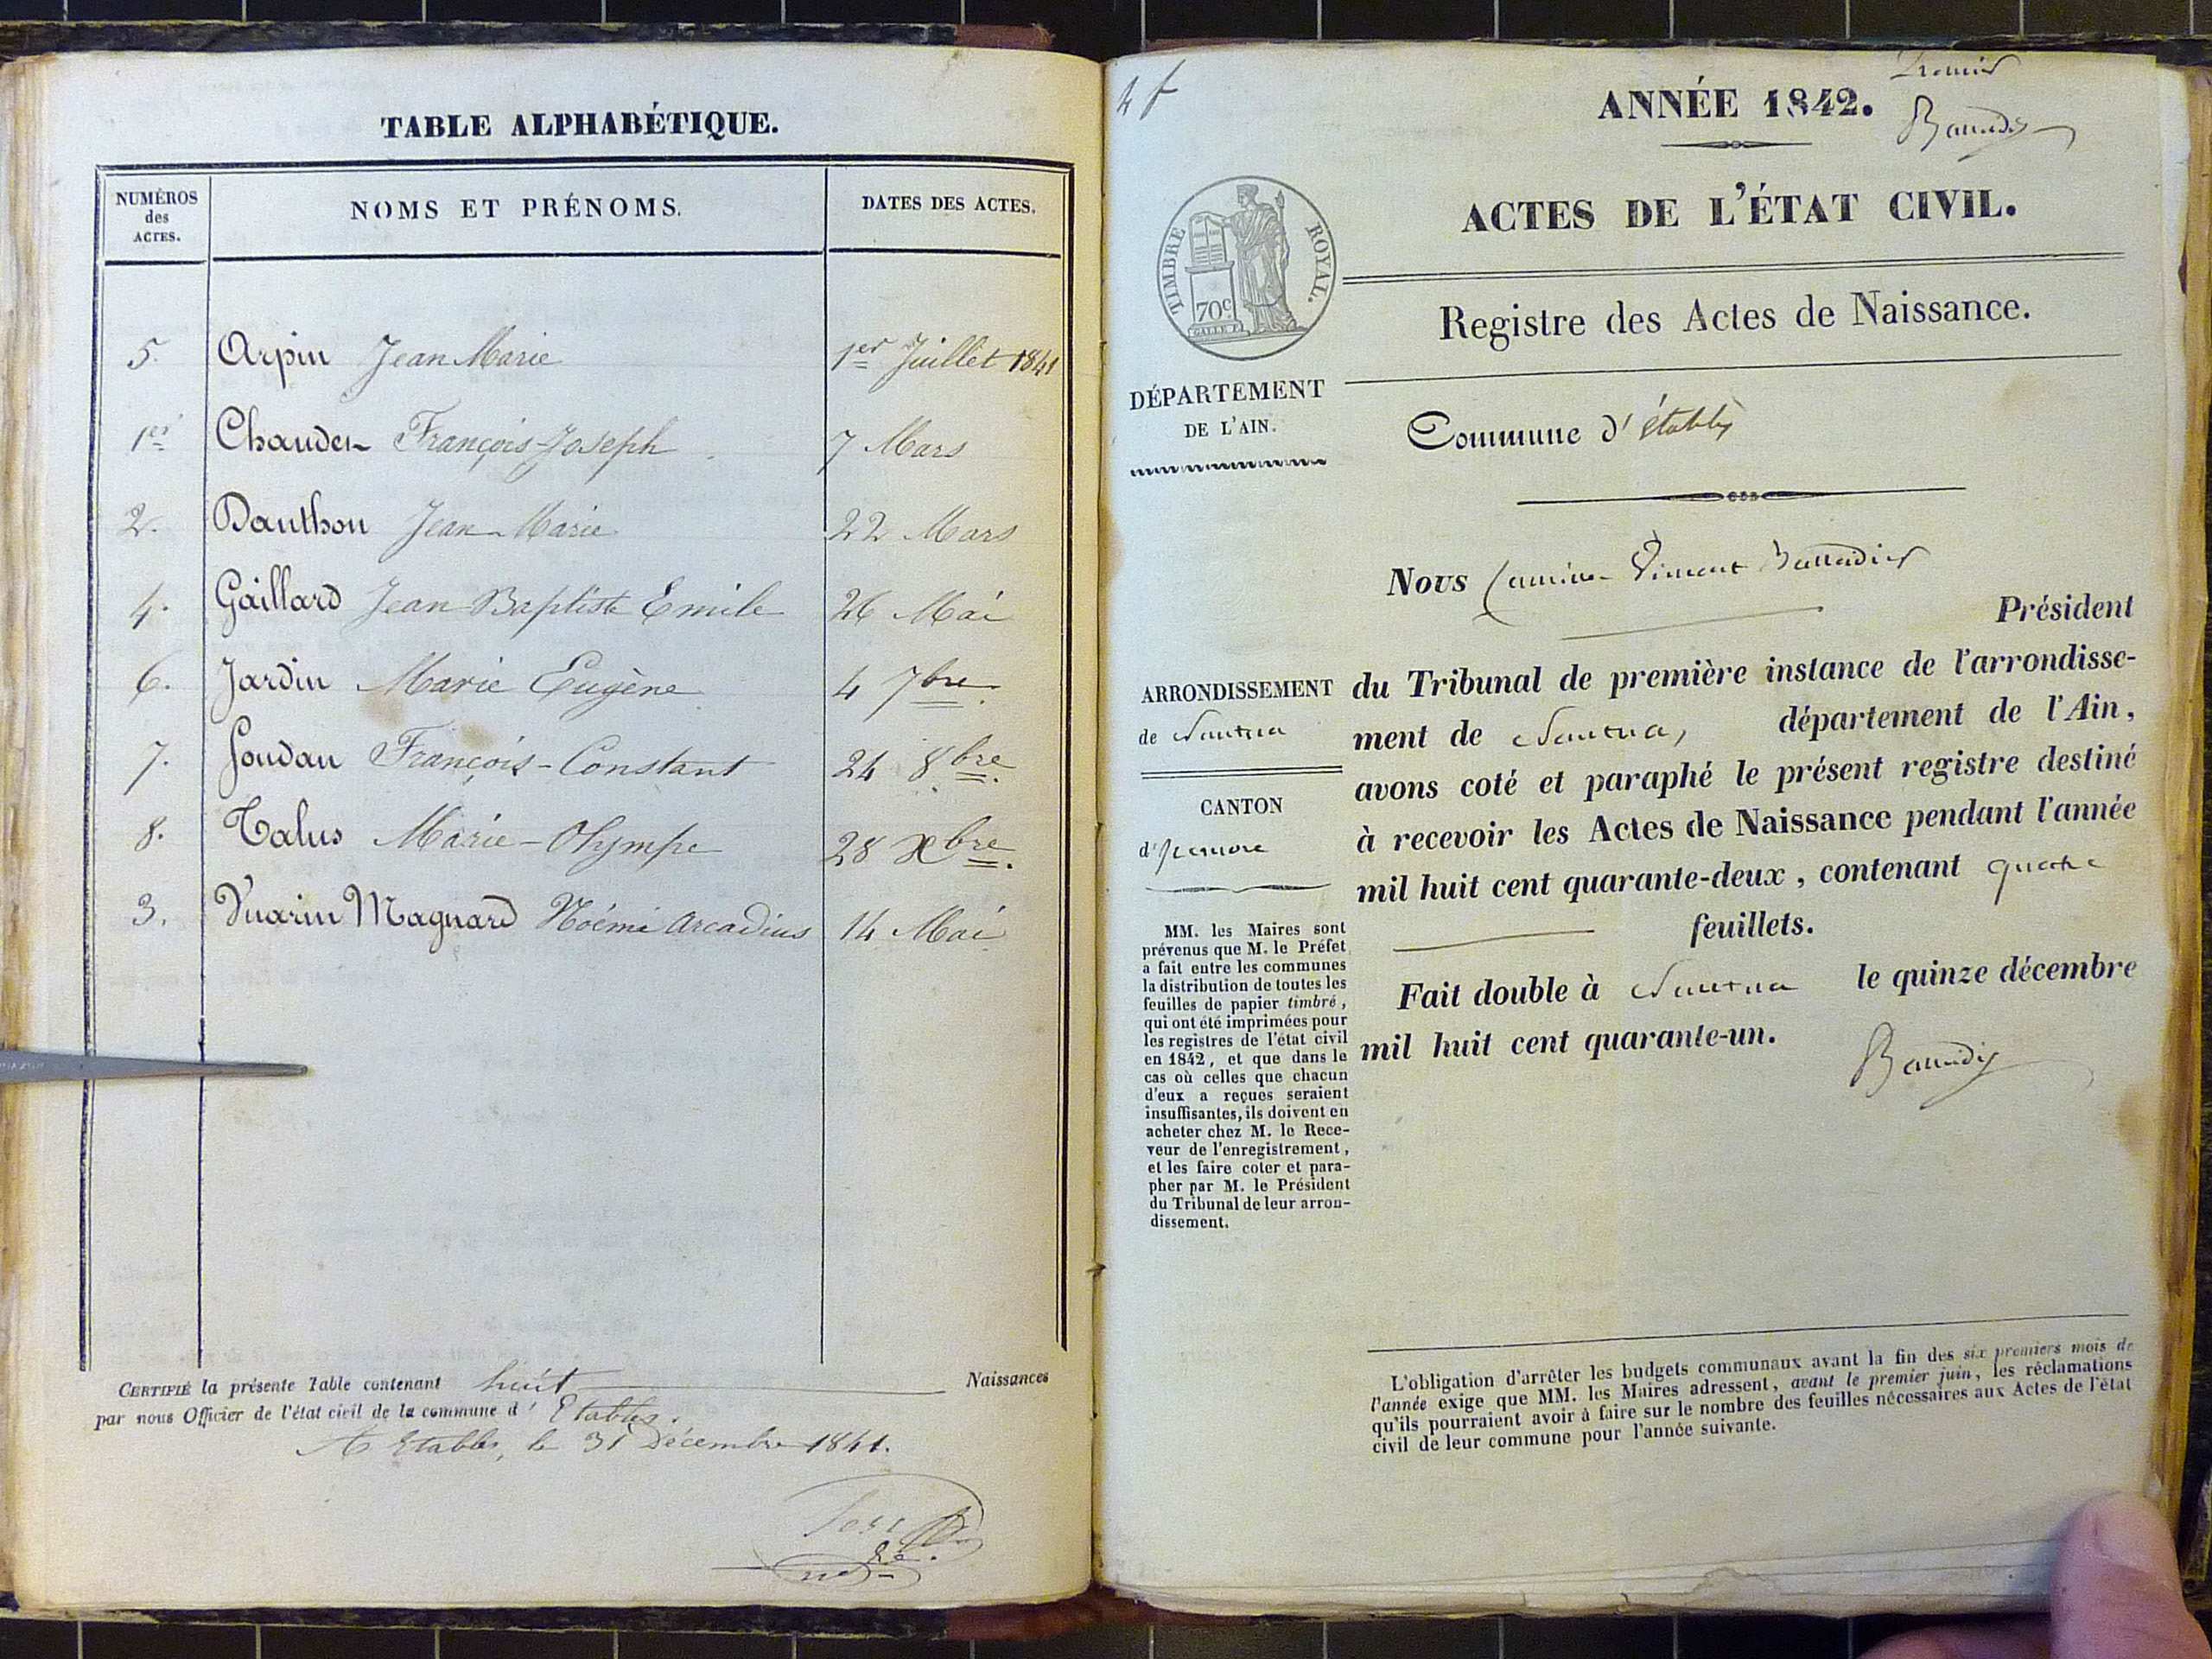 TABLE ALPHABÉTIQUE.
NUMÉROS des ACTES.
NOMS ET PRÉNOMS.
DATES DES ACTES.
5. Arpin Jean Marie 1er Juillet 1841
1er Chauden François-Joseph 7 Mars
2. Danthon Jean-Marie 22 Mars
4. Gaillard Jean Baptiste Emile 26 Mai
6. Jardin Marie Eugène 4 7bre
7. Soudan François-Constant 24 8bre.
8. Talus Marie-Olympe 28 Xbre.
3. Vuarin Magnard Noémi Arcadius 14 Mai
CERTIFIÉ la présente Table contenant huit Naissances
par nous Officier de l'état civil de la commune d' Etables.
A Etables, le 31 Décembre 1841.
ANNÉE 1842.
Premier
ACTES DE L'ÉTAT CIVIL.
TIMBRE ROYAL.
70c
Registre des Actes de Naissance.
DÉPARTEMENT
DE L'AIN.
Commune d'étables
Nous
Président
du Tribunal de première instance de l'arrondisse-
ment de Nantua, département de l'Ain,
avons coté et paraphé le présent registre destiné
à recevoir les Actes de Naissance pendant l'année
mil huit cent quarante-deux, contenant quatre
feuillets.
Fait double à Nantua le quinze décembre
mil huit cent quarante-un.
ARRONDISSEMENT
de Nantua
CANTON
d'izernore
MM. les Maires sont
prévenus que M. le Préfet
a fait entre les communes
la distribution de toutes les
feuilles de papier timbré,
qui ont été imprimées pour
les registres de l'état civil
en 1842, et que dans le
cas où celles que chacun
d'eux a reçues seraient
insuffisantes, ils doivent en
acheter chez M. le Rece-
veur de l'enregistrement,
et les faire coter et para-
pher par M. le Président
du Tribunal de leur arron-
dissement.
L'obligation d'arrêter les budgets communaux avant la fin des six premiers mois de
l'année exige que MM. les Maires adressent, avant le premier juin, les réclamations
qu'ils pourraient avoir à faire sur le nombre des feuilles nécessaires aux Actes de l'état
civil de leur commune pour l'année suivante.